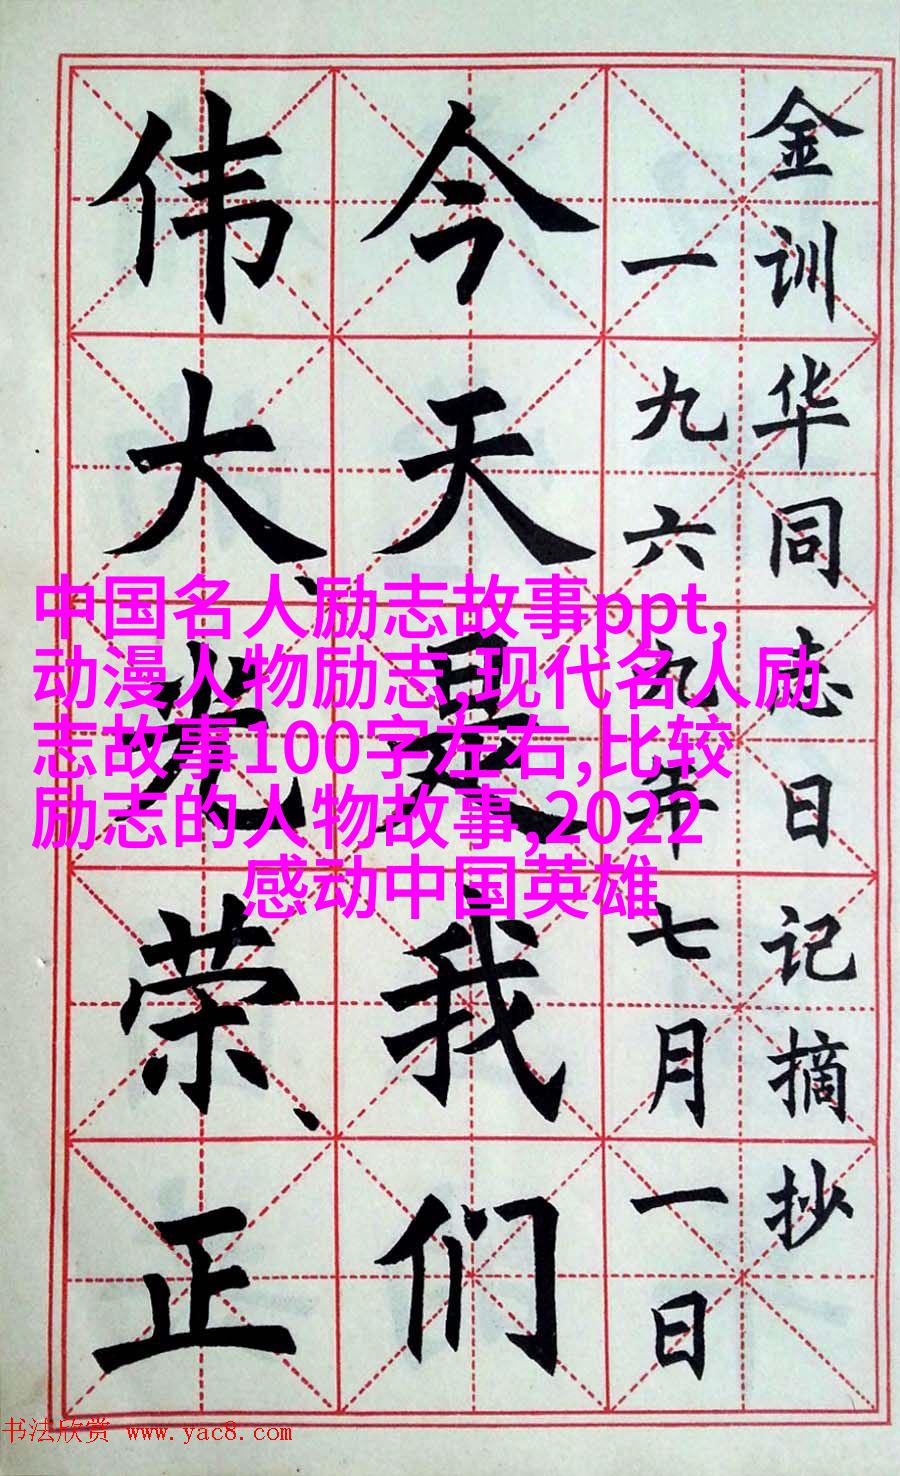 金训华同志日记摘抄
一九六九年七月一日
今天是我们
伟大、光荣、正
中国名人励志故事ppt,
动漫人物励志,现代名人励
志故事100字左右,比较
励志的人物故事,2022
感动中国英雄
书法欣赏 www.yac8.com